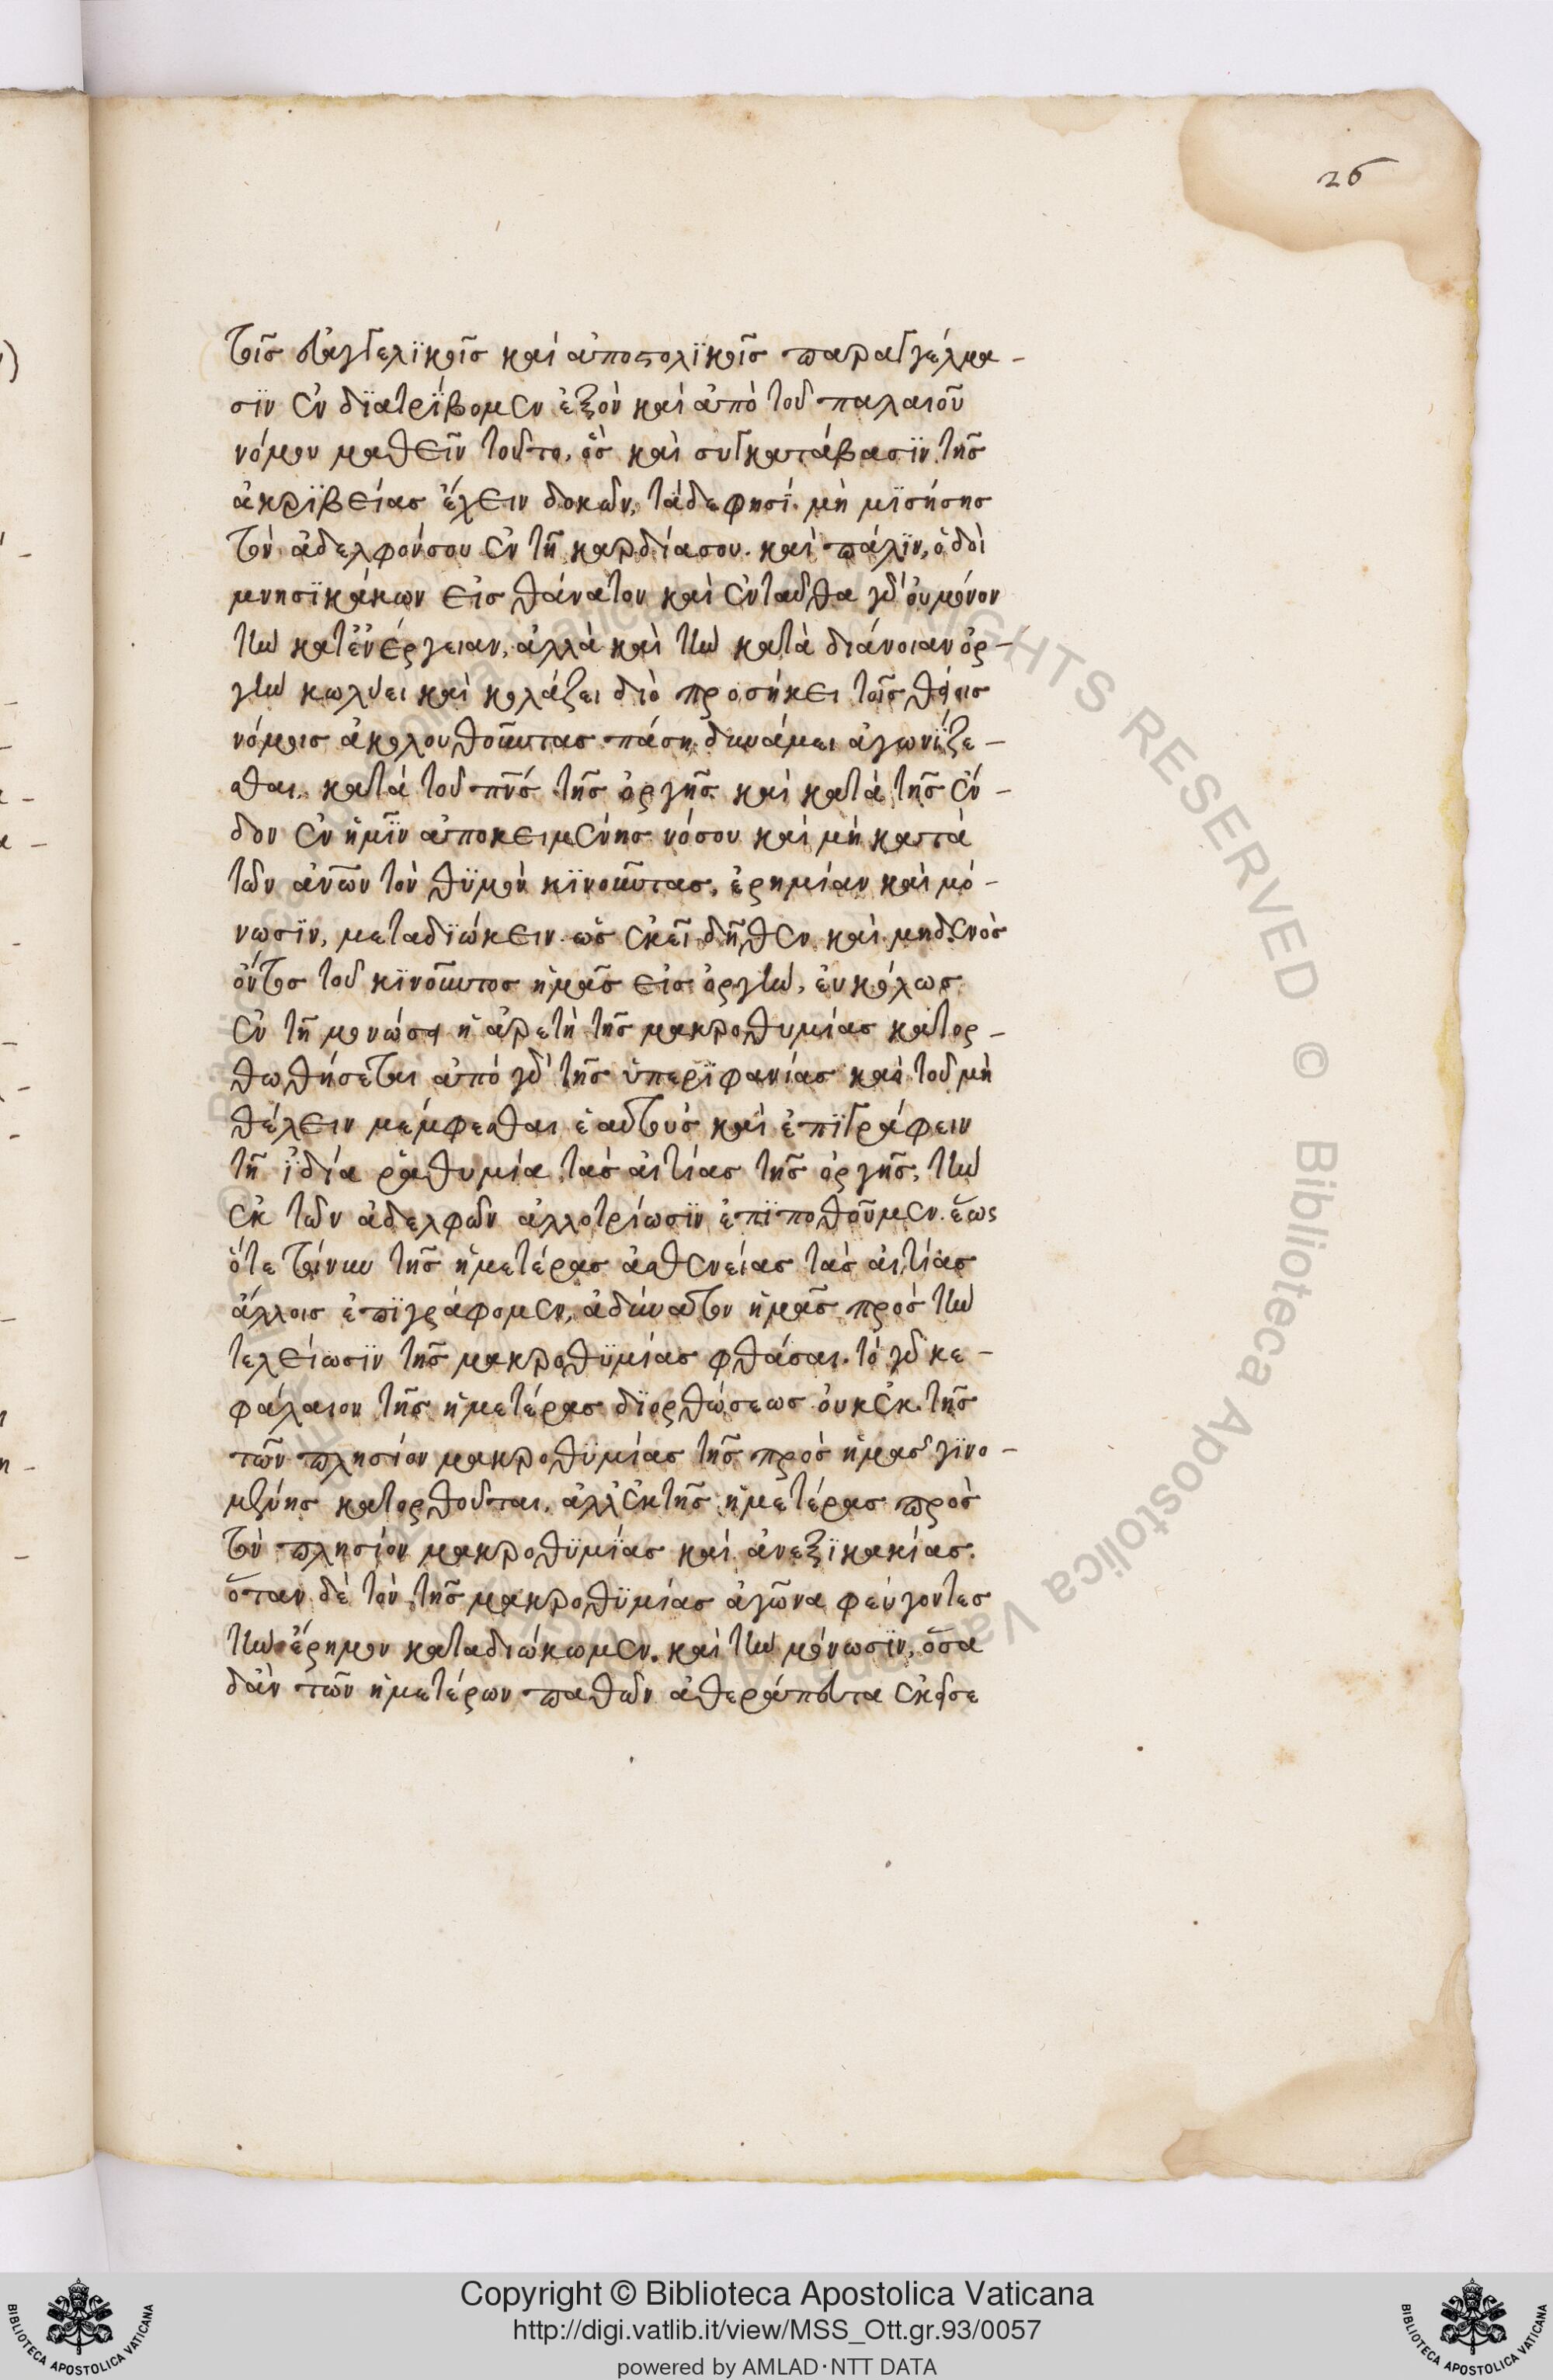 26
τοῖς εὐαγγελϊκοῖς καὶ ἀποστολϊκοῖς παραγγέλμα-
σϊν ἐν δϊατρϊβομεν ἐξὸν καὶ ἀπὸ τοῦ παλαιοῦ
νόμου μαθεῖν τοῦτο, ὃς καὶ συγκατάβασϊν τῆς
ἀκρϊβείας ἔχειν δοκῶν, τάδε φησί. μὴ μϊσήσης
τὸν ἀδελφόνσου ἐν τῇ καρδίασου. καὶ πάλϊν, ὁδοὶ
μνησϊκάκων εἰς θάνατον καὶ ἐνταῦθα γὰρ οὐ μόνον
τὴν κατ' ἐνέργειαν, ἀλλὰ καὶ τὴν κατὰ διάνοιαν ὀρ-
γὴν κωλύει καὶ κολάζει διὸ προσήκει τοῖς θείοις
νόμοις ἀκολουθοῦντας πάση δυνάμει ἀγωνίζε-
σθαι. κατὰ τοῦ πνς τῆς ὀργῆς καὶ κατὰ τῆς ἔν-
δον ἐν ἡμῖν ἀποκειμένης νόσου καὶ μὴ κατὰ
τῶν ἀνων τὸν θϋμὸν κϊνοῦντας, ἐρημίαν καὶ μό-
νωσϊν, μεταδϊώκειν. ὡς ἐκεῖ δῆθεν καὶ μηδενὸς
ὄντος τοῦ κϊνοῦντος ἡμᾶς εἰς ὀργὴν, εὐκόλως
ἐν τῇ μονώσει ἡ ἀρετὴ τῆς μακροθυμίας κατορ-
θωθήσεται ἀπὸ γὰρ τῆς ὑπερϊφανίας καὶ τοῦ μὴ
θέλειν μέμφεσθαι ἑαυτοὺς καὶ ἐπϊγράφειν
τῇ ἰδία ῥαθυμία τὰς αἰτίας τῆς ὀργῆς, τὴν
ἐκ τῶν ἀδελφῶν ἀλλοτρίωσϊν ἐπϊποθοῦμεν. ἕως
ὅτε τοίνυν τῆς ἡμετέρας ἀσθενείας τὰς αἰτίας
ἄλλοις ἐπϊγράφομεν, ἀδύνατον ἡμᾶς πρὸς τὴν
τελείωσϊν τῆς μακροθϋμίας φθάσαι. τὸ γὰρ κε-
φάλαιον τῆς ἡμετέρας δϊορθώσεως οὐκ ἐκ τῆς
τῶν πλησίον μακροθϋμίας τῆς πρὸς ἡμᾶς γϊνο-
μένης κατορθοῦται, ἀλλ' ἐκ τῆς ἡμετέρας πρὸς
τὸν πλησίον μακροθϋμίας καὶ ἀνεξϊκακίας.
ὅταν δὲ τὸν τῆς μακροθϋμίας ἀγῶνα φεύγοντες
τὴν ἔρημον καταδιώκωμεν. καὶ τὴν μόνωσϊν, ὅσα
δἂν τῶν ἡμετέρων παθῶν ἀθεράπευτα ἐκεῖσε
Copyright © Biblioteca Apostolica Vaticana
http://digi.vatlib.it/view/MSS_Ott.gr.93/0057
powered by AMLAD·NTT DATA